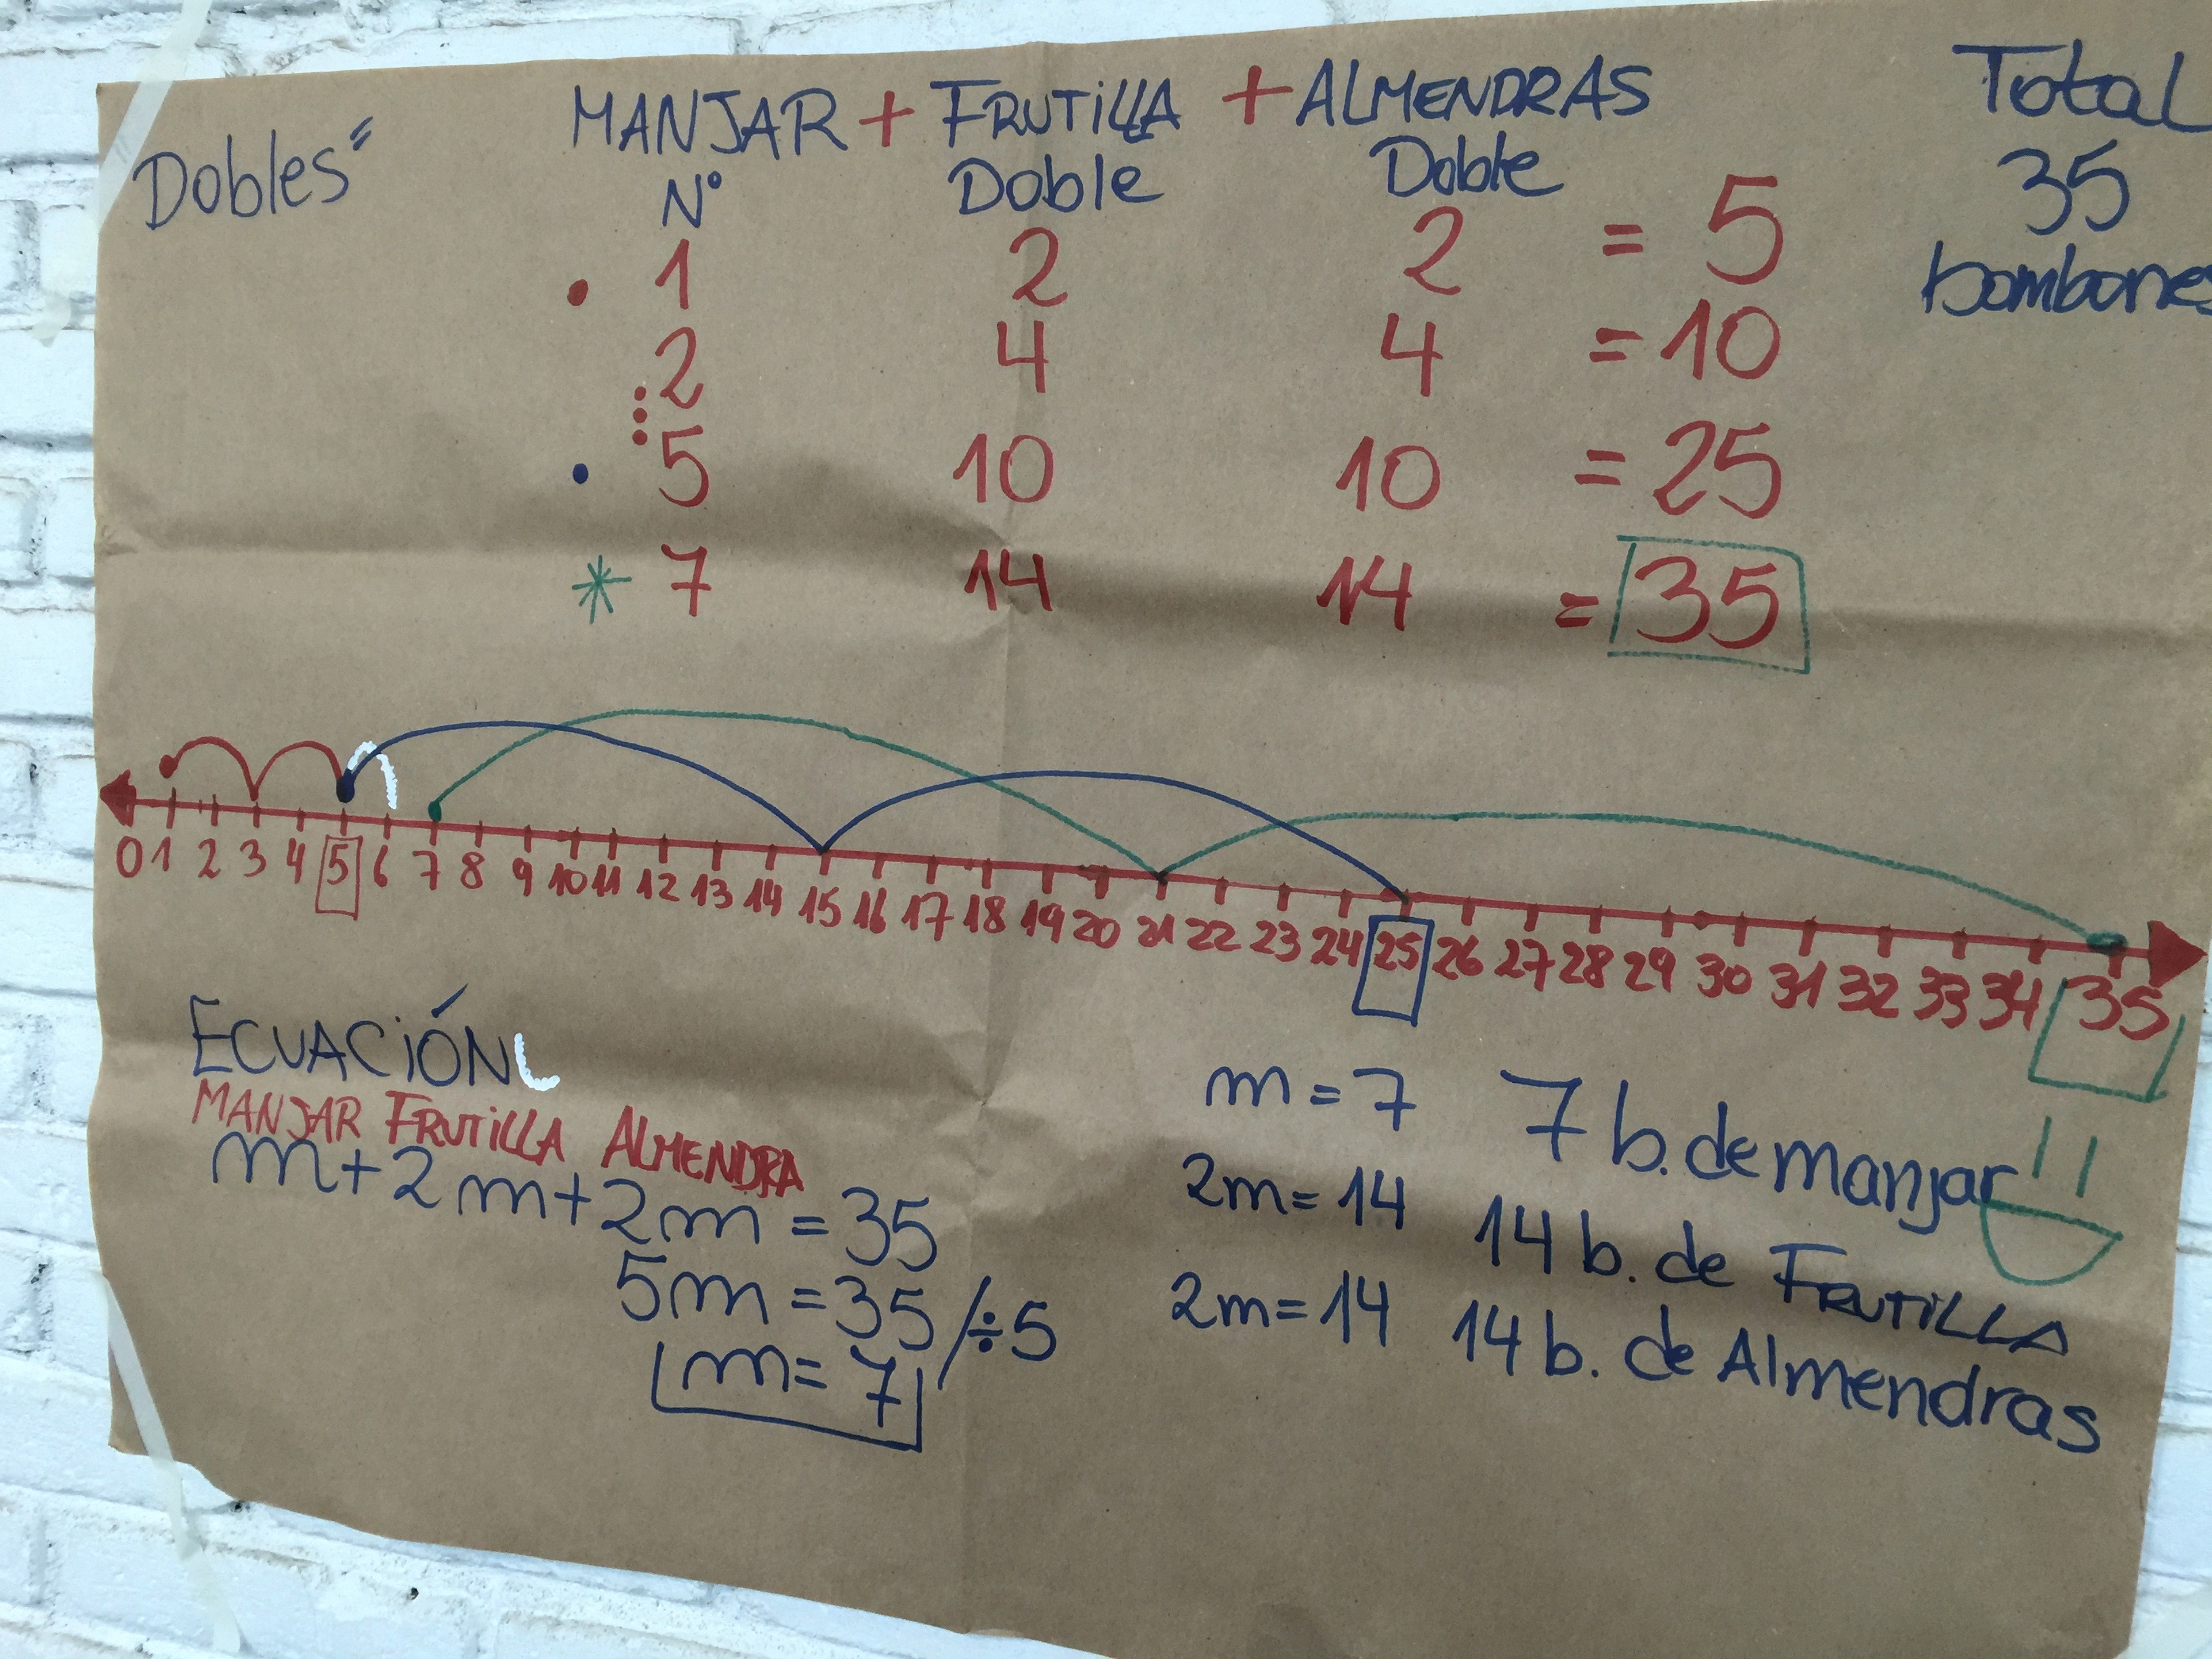 Dobles"
MANJAR + FRUTILLA + ALMENDRAS
N° Doble Doble
1 2 2 = 5
2 4 4 = 10
5 10 10 = 25
7 14 14 = 35
Total
35
bombones
0 1 2 3 4 5 6 7 8 9 10 11 12 13 14 15 16 17 18 19 20 21 22 23 24 25 26 27 28 29 30 31 32 33 34 35
ECUACIÓN
MANJAR FRUTILLA ALMENDRA
m+2m+2m = 35
5m = 35 /÷5
m = 7
m = 7 7 b. de manjar
2m = 14 14 b. de FRUTILLA
2m = 14 14 b. de Almendras